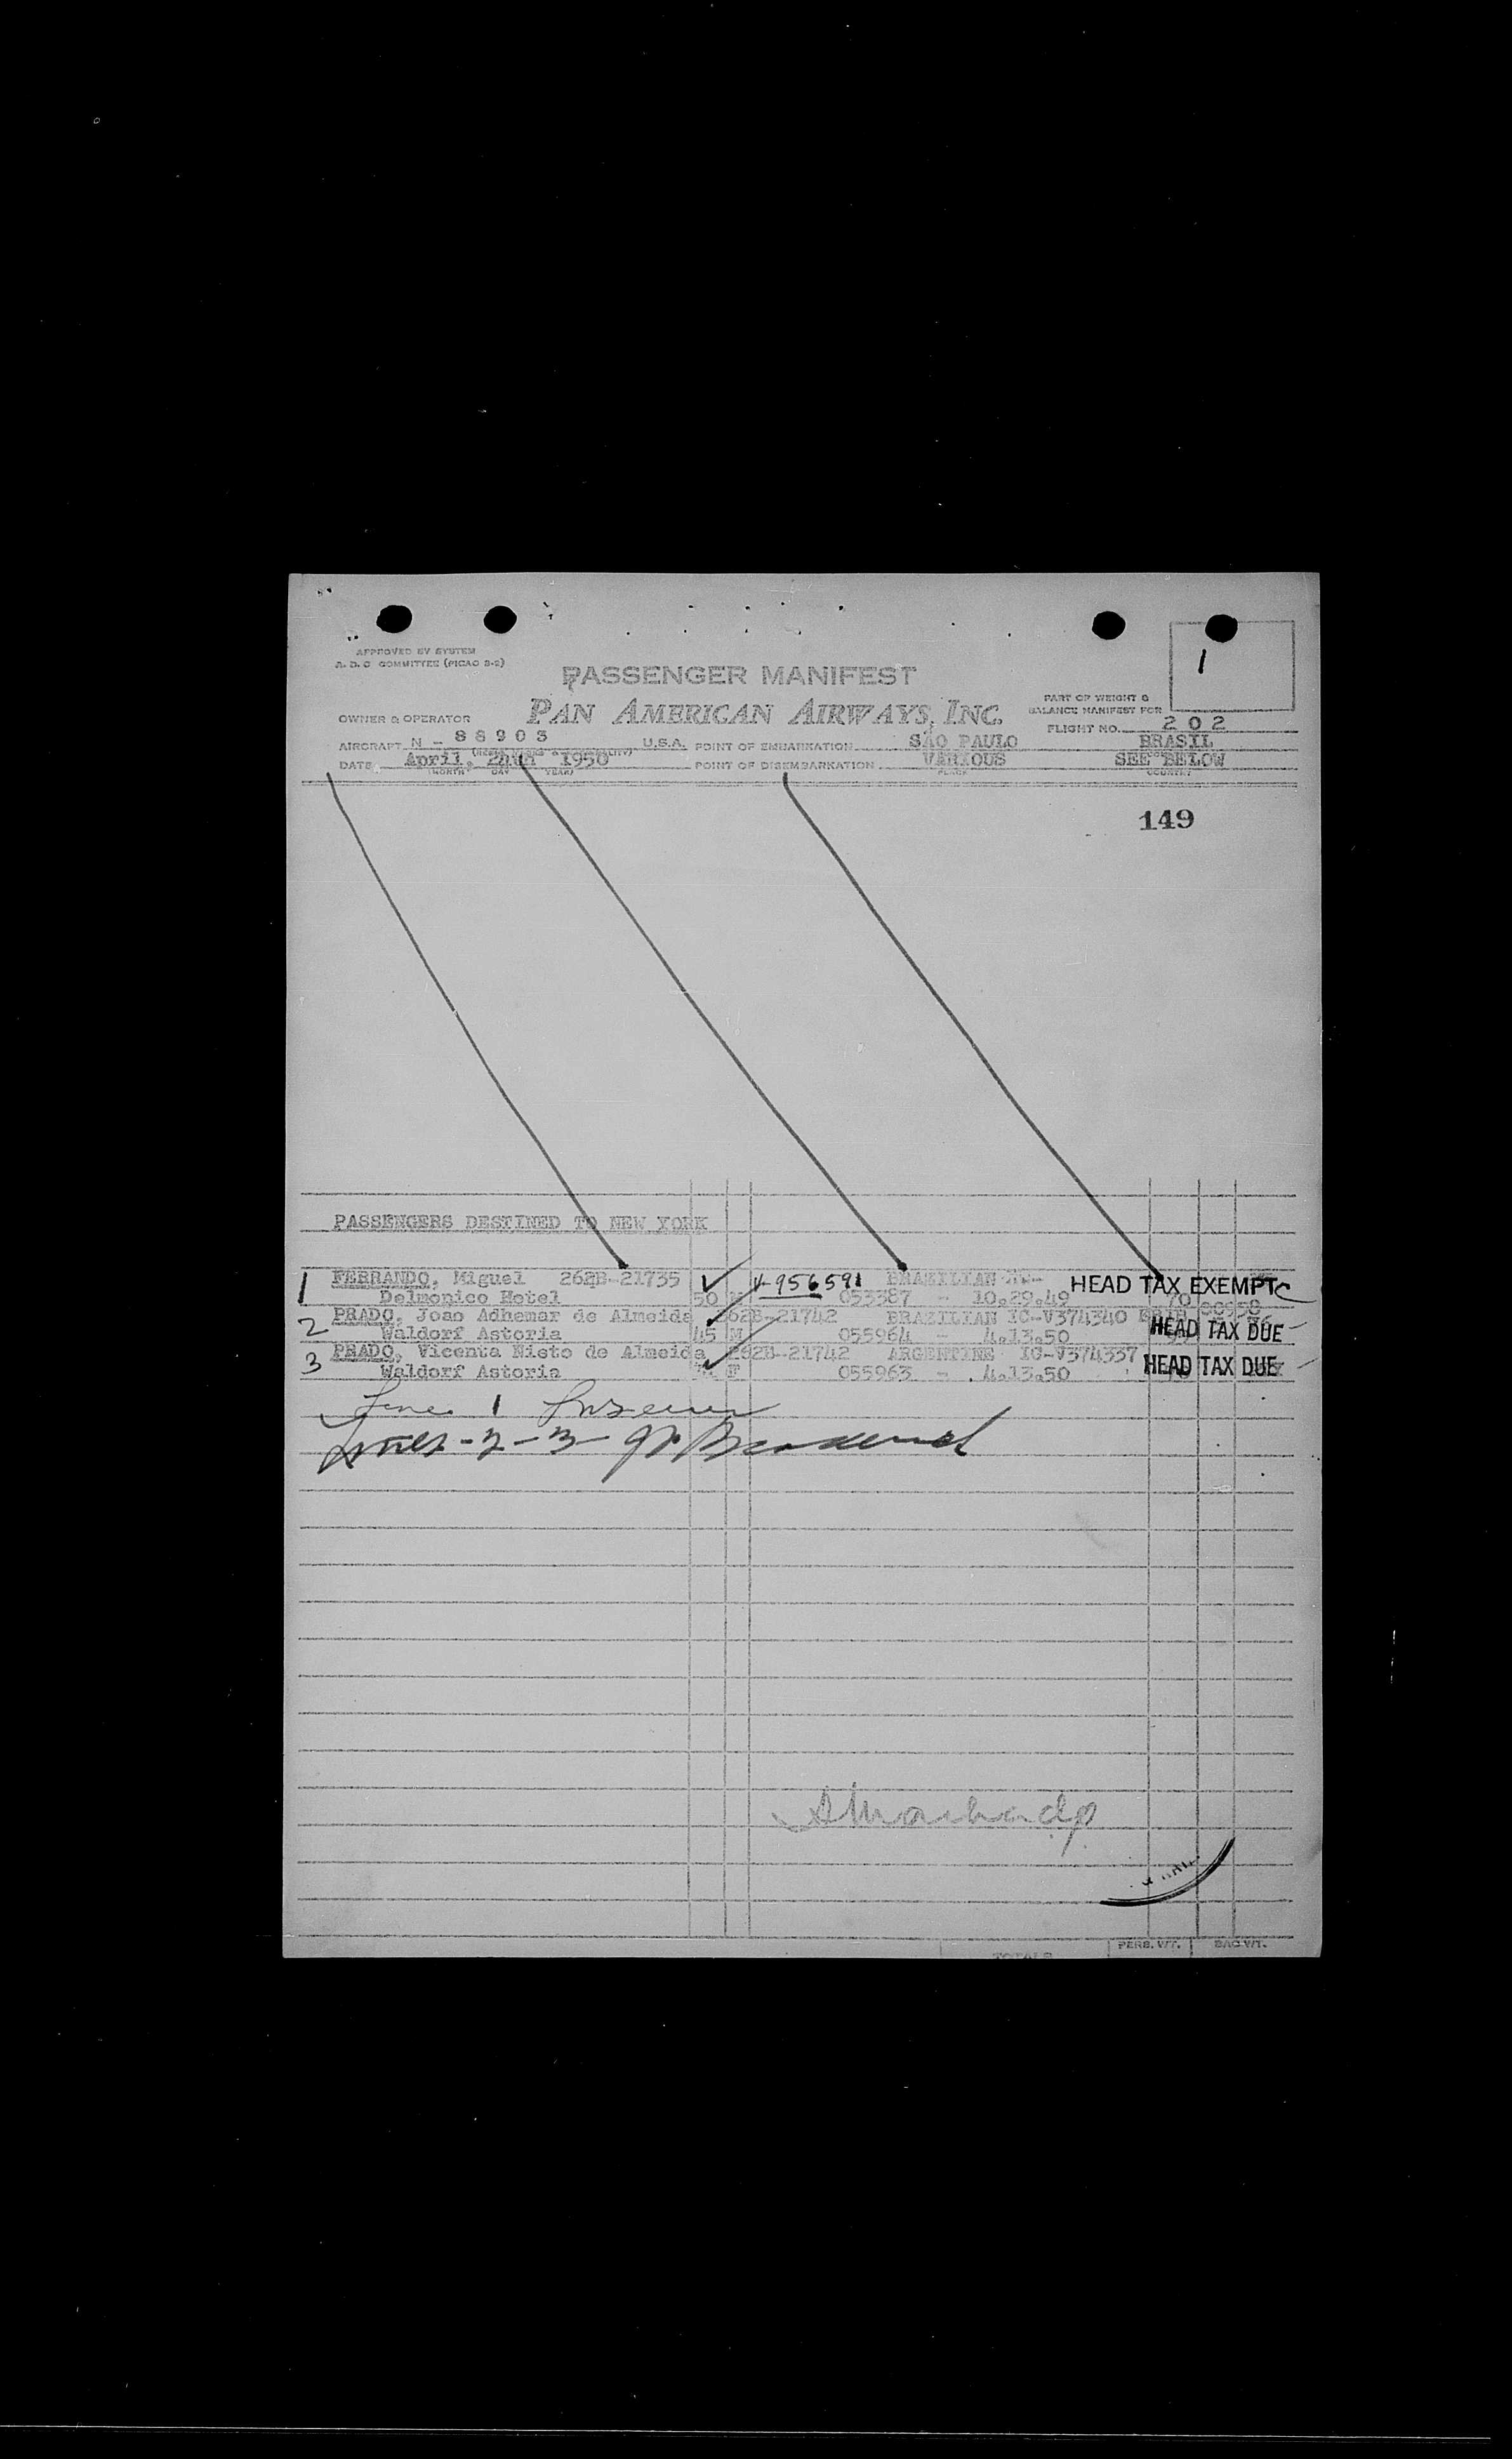 APPROVED BY SYSTEM
A. D. C COMMITTEE (PICAO 2-2)
1
PASSENGER MANIFEST
PAN AMERICAN AIRWAYS, INC.
PART OF WEIGHT &
BALANCE MANIFEST FOR
OWNER & OPERATOR
FLIGHT NO. 202
AIRCRAFT N - 88903 U.S.A. POINT OF EMBARKATION SÃO PAULO BRASIL
DATE April, 1950 POINT OF DISEMBARKATION VARIOUS SEE BELOW
(MONTH DAY YEAR) PLACE COUNTRY
149
PASSENGERS DESTINED TO NEW YORK
1 FERRANDO, Miguel 262B-21735 V-956591 BRAZILIAN HEAD TAX EXEMPT
Delmonico Hotel 50 M 053387 - 10.29.49 70
2 PRADO, Joao Adhemar de Almeida 262B-21742 BRAZILIAN IC-V374340
Waldorf Astoria 45 M 055964 - 4.13.50 HEAD TAX DUE
3 PRADO, Vicenta Nieto de Almeida 262B-21742 ARGENTINE IC-V374337
Waldorf Astoria F 055963 - 4.13.50 HEAD TAX DUE
Line 1
Lines - 2 - 3 -
TOTALS PERS. WT. BAG WT.